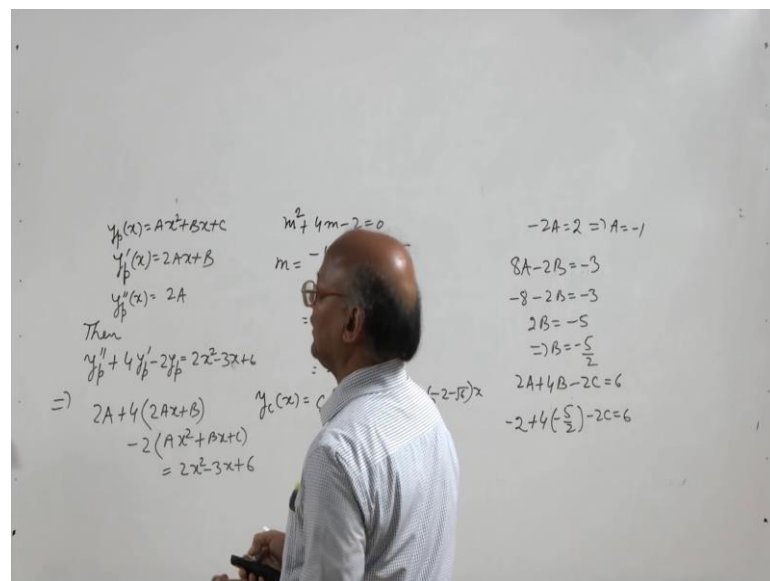 y_p(x) = Ax² + Bx + C
y_p'(x) = 2Ax + B
y_p''(x) = 2A
Then
y_p'' + 4y_p' - 2y_p = 2x² - 3x + 6
=> 2A + 4(2Ax + B)
- 2(Ax² + Bx + C)
= 2x² - 3x + 6
m² + 4m - 2 = 0
m = -
=
=
y_c(x) = C (-2-√6)x
-2A = 2 => A = -1
8A - 2B = -3
-8 - 2B = -3
2B = -5
=> B = -5/2
2A + 4B - 2C = 6
-2 + 4(-5/2) - 2C = 6